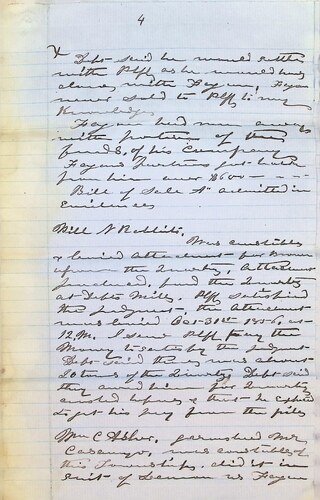 4
X Debt said he would settle
with Plff as he would have
done, with Fagan, Fagan
never sold to Plff to my
Knowledge
Fagan had run away
with portion of the
funds, of his Company
Fagans partners got back
from him over $600 - - -
Bill of Sale "A" admitted in
Evidence
Will N Babbitt.
Was constable
& levied Attachment for Brown
upon the Quartz, Attachmt
produced, find the Quartz
at Debts Mill. Plff satisfied
the judgment, the Attachment
was levied Oct 31st 1856, at
12 M. I saw Plff pay the
Money to satisfy the judgmt
Debt said there was about
20 tons of the Quartz, Debt said
they owed him for Quartz
crushed before & that he expected
to get his pay from the piles
Wm C Asher, garnished Mr
, was constable of
this Township, did it in
suit of vs Fagan